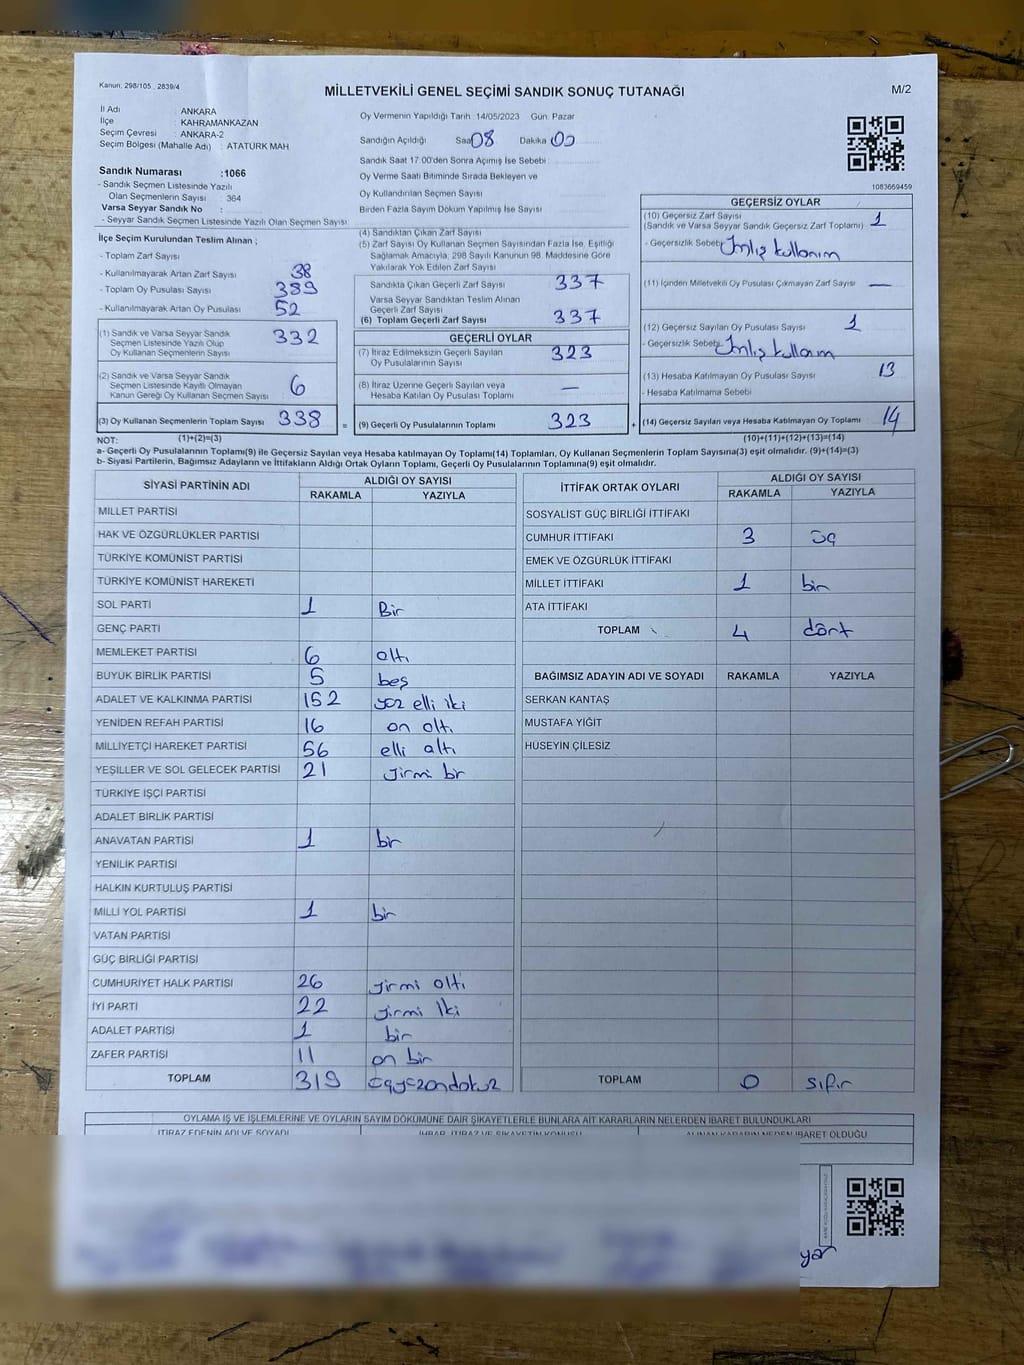 Kanun: 298/105 , 2839/4
MİLLETVEKİLİ GENEL SEÇİMİ SANDIK SONUÇ TUTANAĞI
M/2
İl Adı : ANKARA
İlçe : KAHRAMANKAZAN
Seçim Çevresi : ANKARA-2
Seçim Bölgesi (Mahalle Adı) : ATATÜRK MAH
Sandık Numarası :1066
- Sandık Seçmen Listesinde Yazılı
Olan Seçmenlerin Sayısı : 364
Varsa Seyyar Sandık No :
- Seyyar Sandık Seçmen Listesinde Yazılı Olan Seçmen Sayısı:
Oy Vermenin Yapıldığı Tarih: 14/05/2023 Gün: Pazar
Sandığın Açıldığı Saat 08 Dakika 00
Sandık Saat 17.00'den Sonra Açımış İse Sebebi :
Oy Verme Saati Bitiminde Sırada Bekleyen ve
Oy Kullandırılan Seçmen Sayısı
Birden Fazla Sayım Döküm Yapılmış İse Sayısı
1083669459
İlçe Seçim Kurulundan Teslim Alınan ;
- Toplam Zarf Sayısı
- Kullanılmayarak Artan Zarf Sayısı 38
- Toplam Oy Pusulası Sayısı 389
- Kullanılmayarak Artan Oy Pusulası 52
(1) Sandık ve Varsa Seyyar Sandık
Seçmen Listesinde Yazılı Olup
Oy Kullanan Seçmenlerin Sayısı 332
(2) Sandık ve Varsa Seyyar Sandık
Seçmen Listesinde Kayıtlı Olmayan
Kanun Gereği Oy Kullanan Seçmen Sayısı 6
(3) Oy Kullanan Seçmenlerin Toplam Sayısı 338 =
(4) Sandıktan Çıkan Zarf Sayısı
(5) Zarf Sayısı Oy Kullanan Seçmen Sayısından Fazla İse, Eşitliği
Sağlamak Amacıyla, 298 Sayılı Kanunun 98. Maddesine Göre
Yakılarak Yok Edilen Zarf Sayısı
Sandıkta Çıkan Geçerli Zarf Sayısı 337
Varsa Seyyar Sandıktan Teslim Alınan
Geçerli Zarf Sayısı
(6) Toplam Geçerli Zarf Sayısı 337
GEÇERLİ OYLAR
(7) İtiraz Edilmeksizin Geçerli Sayılan
Oy Pusulalarının Sayısı 323
(8) İtiraz Üzerine Geçerli Sayılan veya
Hesaba Katılan Oy Pusulası Toplamı —
(9) Geçerli Oy Pusulalarının Toplamı 323 +
GEÇERSİZ OYLAR
(10) Geçersiz Zarf Sayısı 1
(Sandık ve Varsa Seyyar Sandık Geçersiz Zarf Toplamı)
- Geçersizlik Sebebi Yanlış kullanım
(11) İçinden Milletvekili Oy Pusulası Çıkmayan Zarf Sayısı —
(12) Geçersiz Sayılan Oy Pusulası Sayısı 1
- Geçersizlik Sebebi Yanlış kullanım
(13) Hesaba Katılmayan Oy Pusulası Sayısı 13
- Hesaba Katılmama Sebebi
(14) Geçersiz Sayılan veya Hesaba Katılmayan Oy Toplamı 14
NOT: (1)+(2)=(3) (10)+(11)+(12)+(13)=(14)
a- Geçerli Oy Pusulalarının Toplamı(9) ile Geçersiz Sayılan veya Hesaba katılmayan Oy Toplamı(14) Toplamları, Oy Kullanan Seçmenlerin Toplam Sayısına(3) eşit olmalıdır. (9)+(14)=(3)
b- Siyasi Partilerin, Bağımsız Adayların ve İttifakların Aldığı Ortak Oyların Toplamı, Geçerli Oy Pusulalarının Toplamına(9) eşit olmalıdır.
SİYASİ PARTİNİN ADI ALDIĞI OY SAYISI
RAKAMLA YAZIYLA
MİLLET PARTİSİ
HAK VE ÖZGÜRLÜKLER PARTİSİ
TÜRKİYE KOMÜNİST PARTİSİ
TÜRKİYE KOMÜNİST HAREKETİ
SOL PARTİ 1 Bir
GENÇ PARTİ
MEMLEKET PARTİSİ 6 altı
BÜYÜK BİRLİK PARTİSİ 5 beş
ADALET VE KALKINMA PARTİSİ 152 yüz elli iki
YENİDEN REFAH PARTİSİ 16 on altı
MİLLİYETÇİ HAREKET PARTİSİ 56 elli altı
YEŞİLLER VE SOL GELECEK PARTİSİ 21 yirmi bir
TÜRKİYE İŞÇİ PARTİSİ
ADALET BİRLİK PARTİSİ
ANAVATAN PARTİSİ 1 bir
YENİLİK PARTİSİ
HALKIN KURTULUŞ PARTİSİ
MİLLİ YOL PARTİSİ 1 bir
VATAN PARTİSİ
GÜÇ BİRLİĞİ PARTİSİ
CUMHURİYET HALK PARTİSİ 26 yirmi altı
İYİ PARTİ 22 yirmi iki
ADALET PARTİSİ 1 bir
ZAFER PARTİSİ 11 on bir
TOPLAM 319 üçyüzondokuz
İTTİFAK ORTAK OYLARI ALDIĞI OY SAYISI
RAKAMLA YAZIYLA
SOSYALİST GÜÇ BİRLİĞİ İTTİFAKI
CUMHUR İTTİFAKI 3 üç
EMEK VE ÖZGÜRLÜK İTTİFAKI
MİLLET İTTİFAKI 1 bir
ATA İTTİFAKI
TOPLAM 4 dört
BAĞIMSIZ ADAYIN ADI VE SOYADI RAKAMLA YAZIYLA
SERKAN KANTAŞ
MUSTAFA YİĞİT
HÜSEYİN ÇİLESİZ
TOPLAM 0 sıfır
OYLAMA İŞ VE İŞLEMLERİNE VE OYLARIN SAYIM DÖKÜMÜNE DAİR ŞİKAYETLERLE BUNLARA AİT KARARLARIN NELERDEN İBARET BULUNDUKLARI
İTİRAZ EDENİN ADI VE SOYADI İHBAR, İTİRAZ VE ŞİKAYETİN KONUSU ALINAN KARARIN NEDEN İBARET OLDUĞU